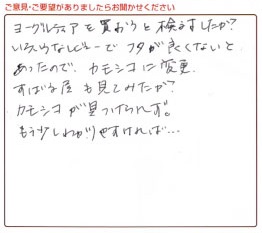 ご意見・ご要望がありましたらお聞かせください
ヨーグルティアを買おうと検討したが?
いろいろなレビューでフタが良くないと
あったので、カモシコに変更
すばる屋も見てみたが?
カモシコが見つけられず。
もう少しわかりやすければ…